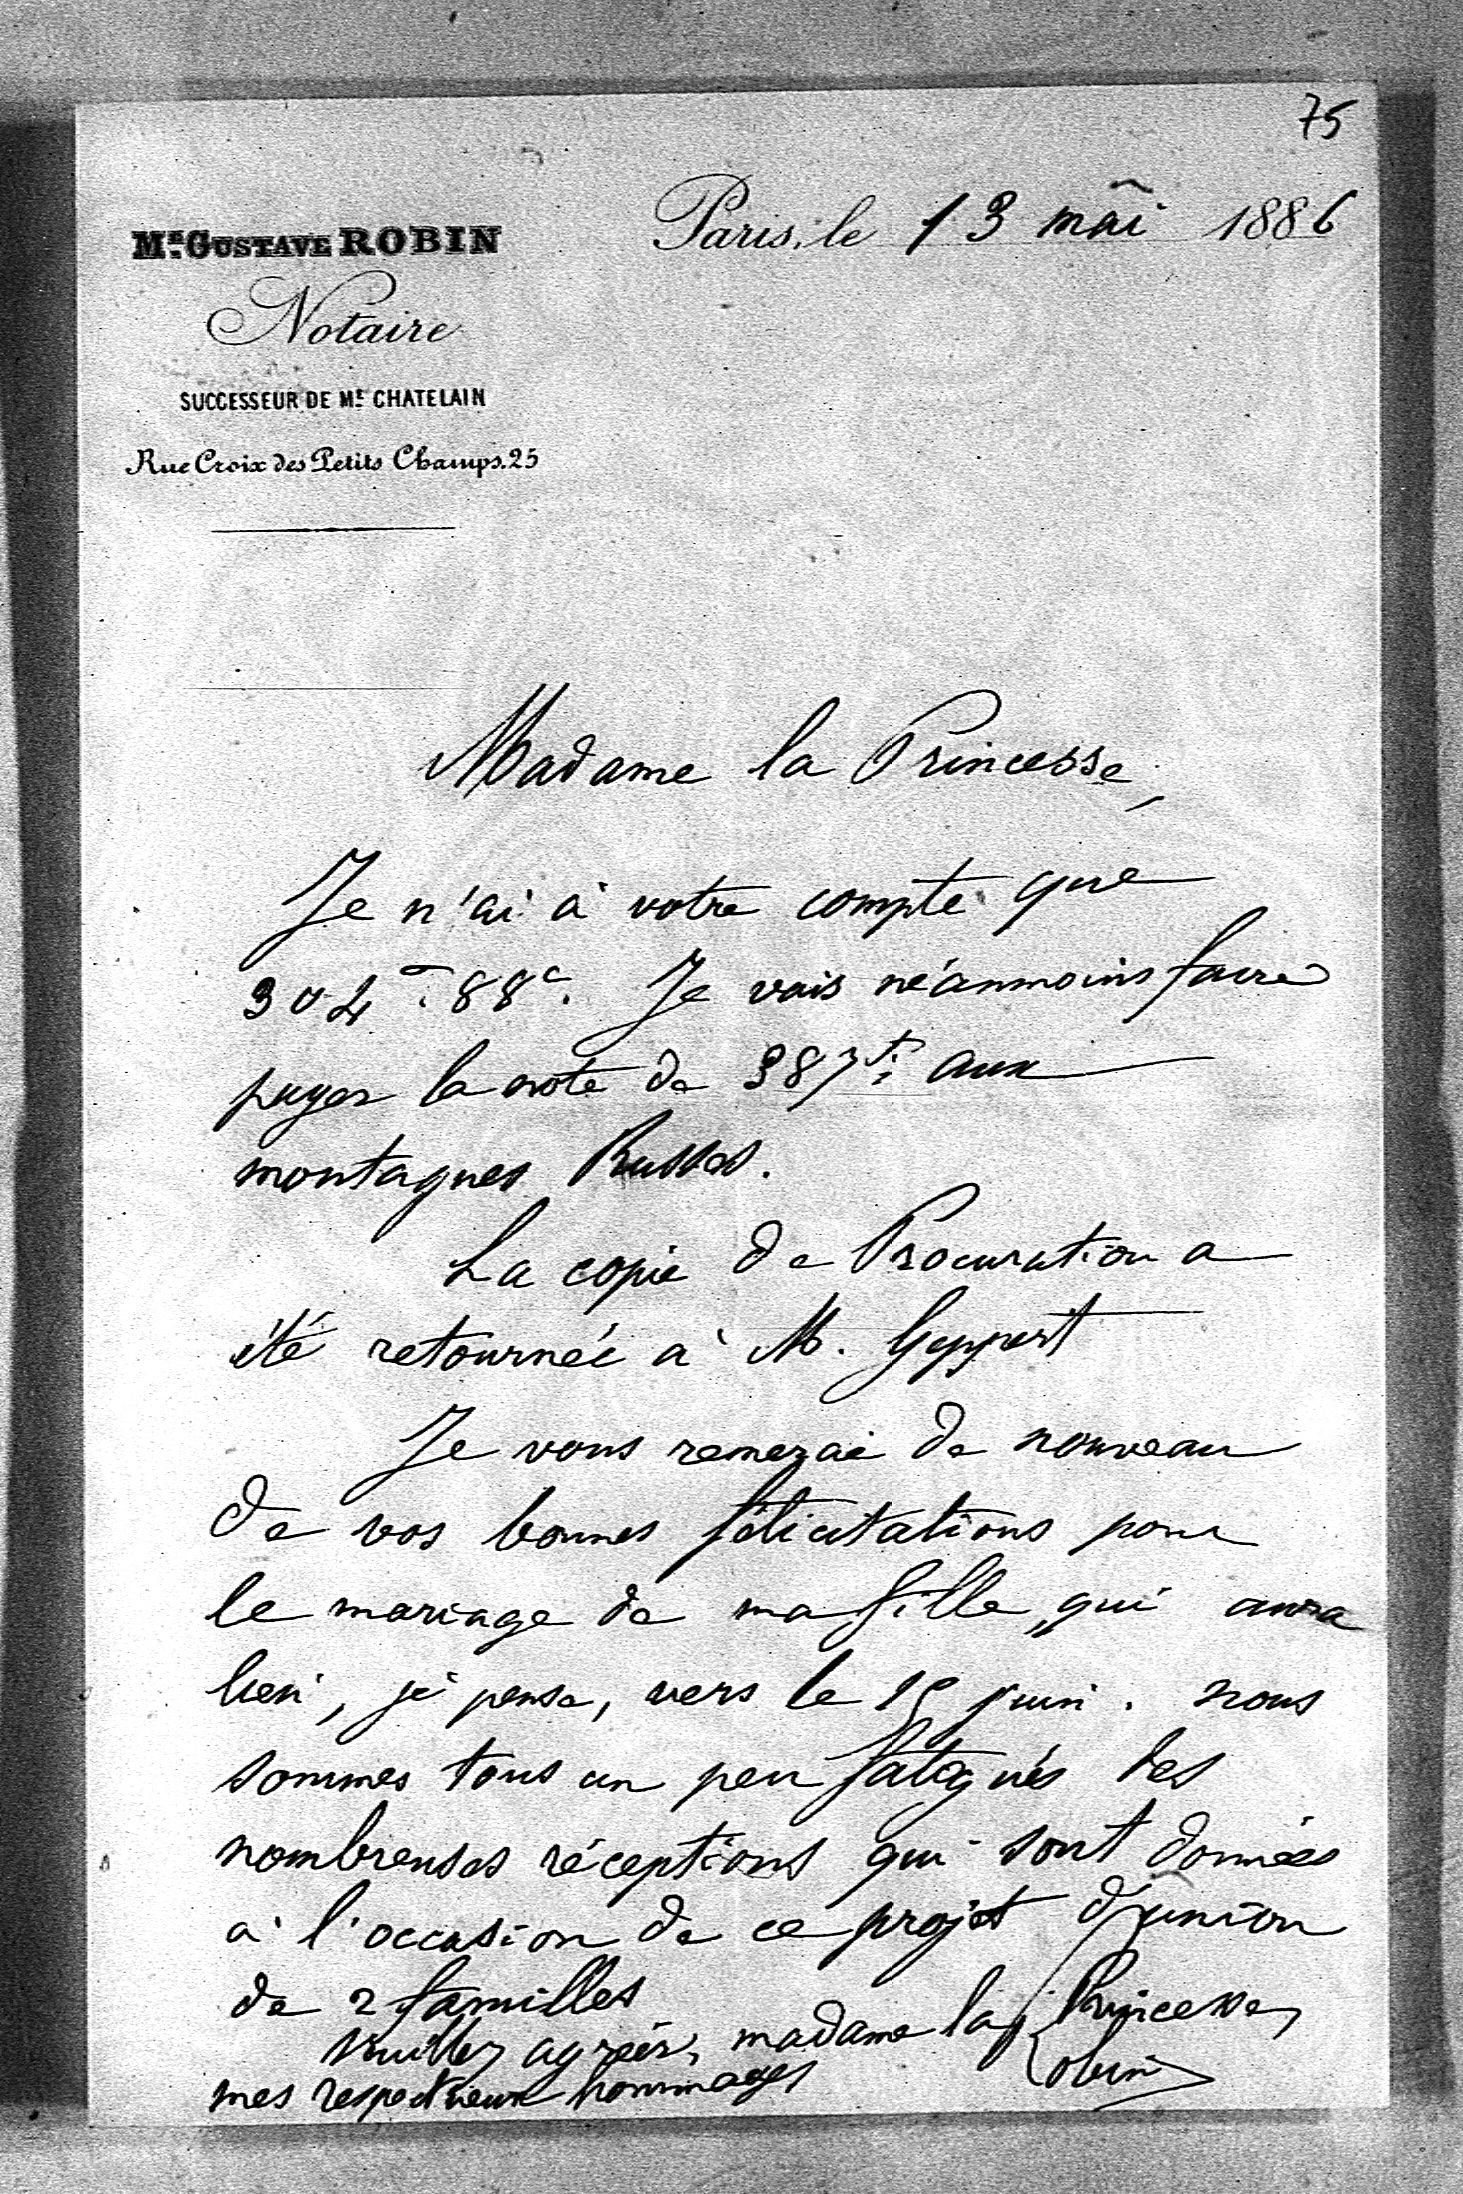 75
Mᵉ. GUSTAVE ROBIN
Notaire
SUCCESSEUR DE Mᵉ CHATELAIN
Rue Croix des Petits Champs. 25
Paris, le 13 mai 1886
Madame la Princesse,
Je n'ai à votre compte que
304 f. 88 c. Je vais néanmoins faire
payer la note de 387 f. aux
montagnes Russes.
La copie de Procuration a
été retournée à M. Geppert
Je vous remercie de nouveau
de vos bonnes félicitations pour
le mariage de ma fille, qui aura
lieu, je pense, vers le 15 juin. nous
sommes tous un peu fatigués des
nombreuses réceptions qui sont données
à l'occasion de ce projet d'union
de 2 familles
Veuillez agréer, madame la Princesse,
mes respectueux hommages
Robin